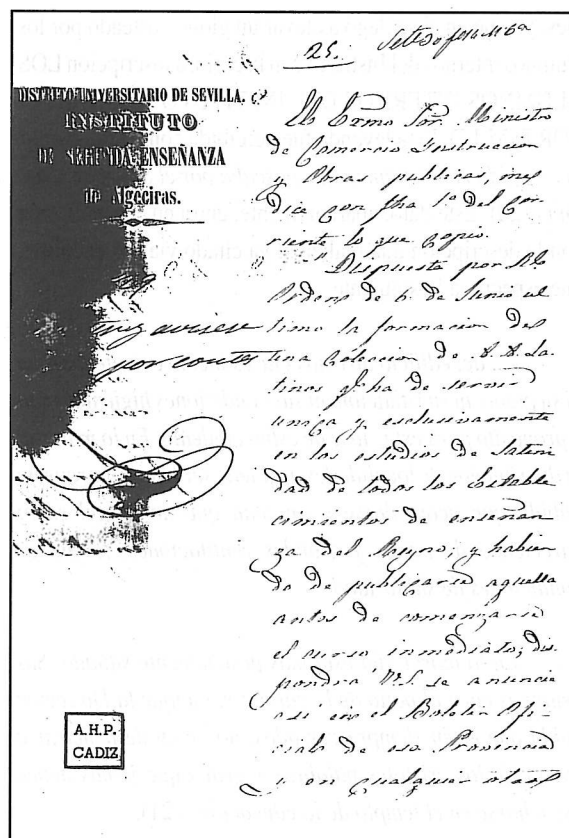 25.
DISTRITO UNIVERSITARIO DE SEVILLA.
INSTITUTO
DE SEGUNDA ENSEÑANZA
de Algeciras.
El Exmo Sor. Ministro
de Comercio Instruccion
y Obras publicas, me
dice con fha 1.º del cor-
riente lo que copio.
"Dispuesta por Rl.
Orden de 6. de Junio ul
timo la formacion de
una Coleccion de A.A. La-
tinos qe. ha de servir
unica y esclusivamente
en los estudios de latini
dad de todos los Estable
cimientos de enseñan
za del Reyno; y habien
do de publicarse aquella
antes de comenzarse
el curso inmediato; dis-
pondrá V.S. se anuncie
asi en el Boletin Ofi-
cial de esa Provincia
y en cualquier otro
avisese
por contes
A.H.P.
CADIZ